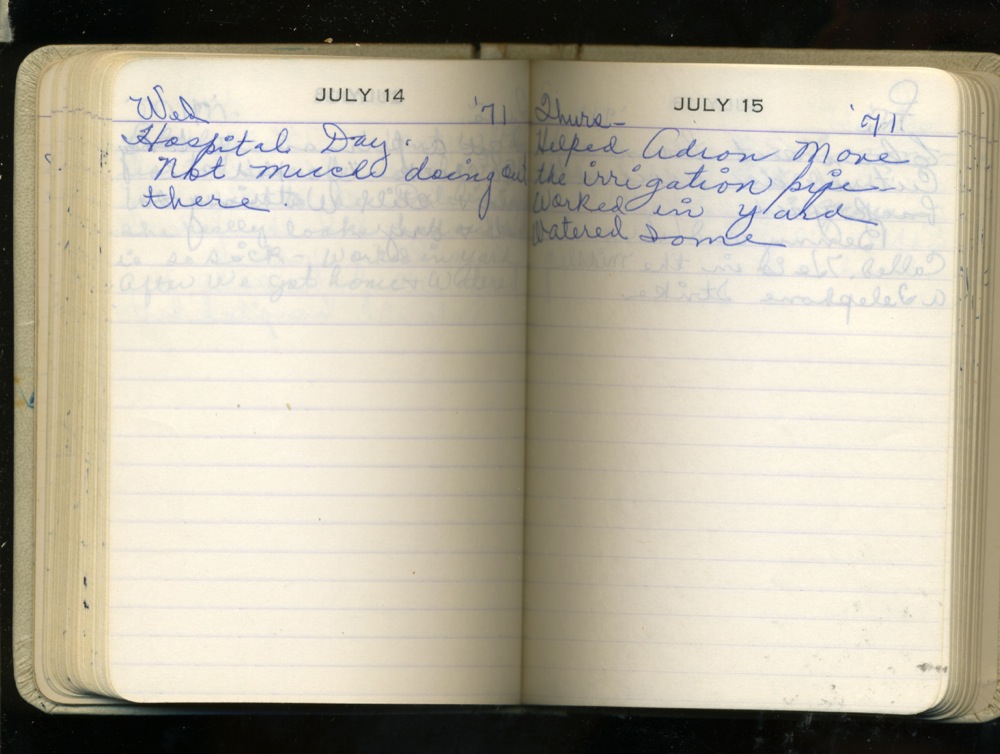 JULY 14
Wed '71
Hospital Day.
Not much doing out
there.
JULY 15
Thurs- '71
Helped Adron Move
the irrigation pipe
Worked in yard
Watered some